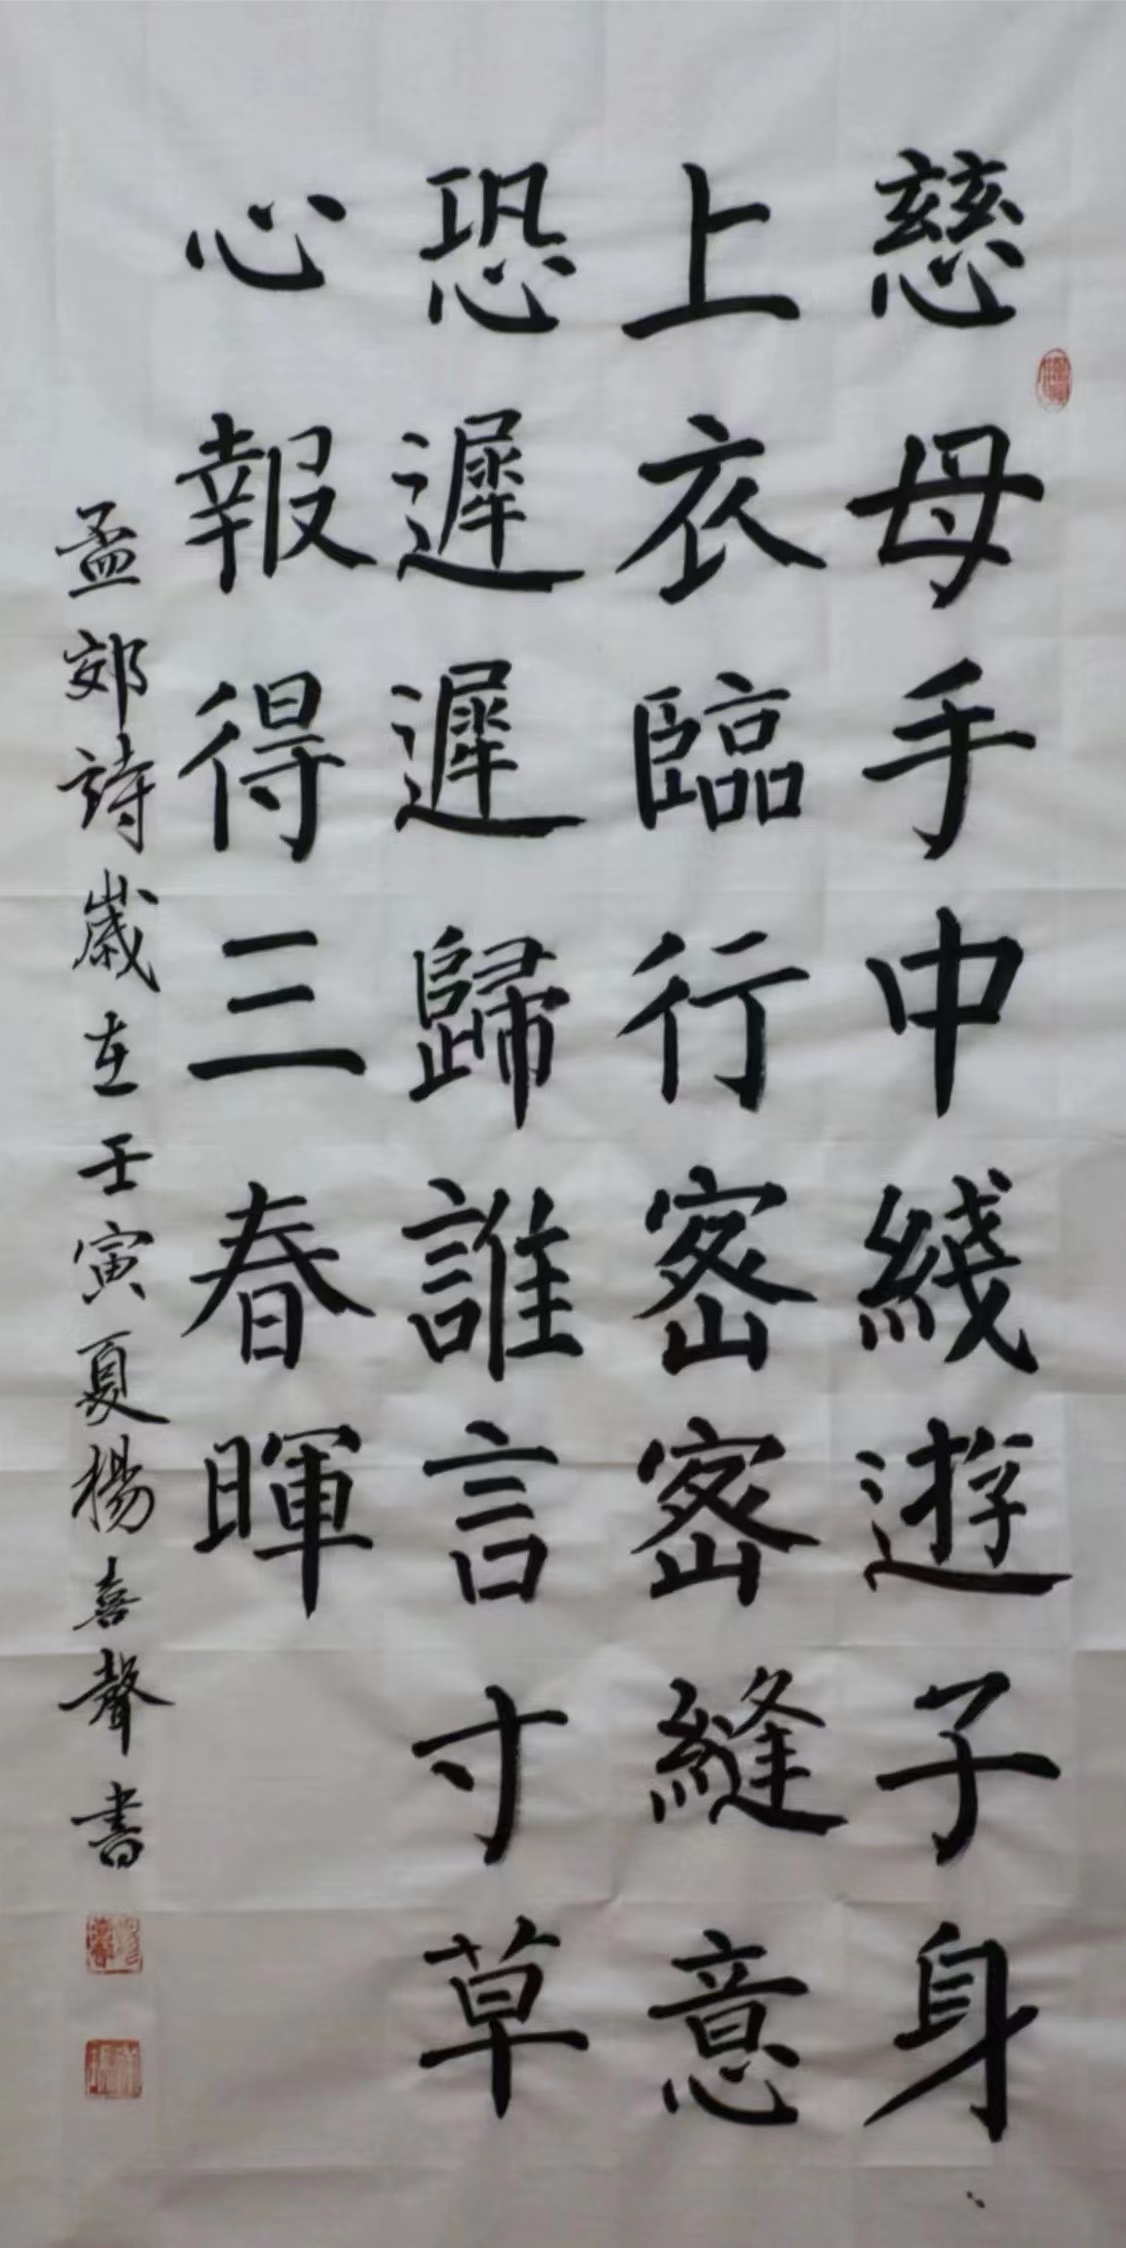 慈母手中綫遊子身
上衣臨行密密縫意
恐遲遲歸誰言寸草
心報得三春暉
孟郊詩歲在壬寅夏楊喜聲書